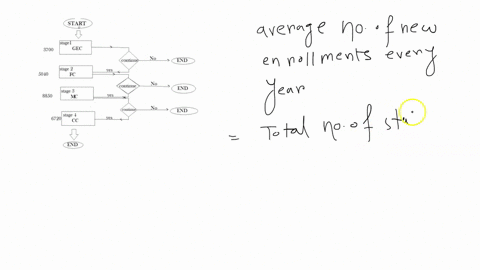 START
stage1
3700 GEC
continue No END
stage 2
3040 yes
FC
continue No END
stage 3
6650 yes
MC
continue No END
stage 4
CC yes
END
average no. of new
enrollments every
year
= Total no. of stu